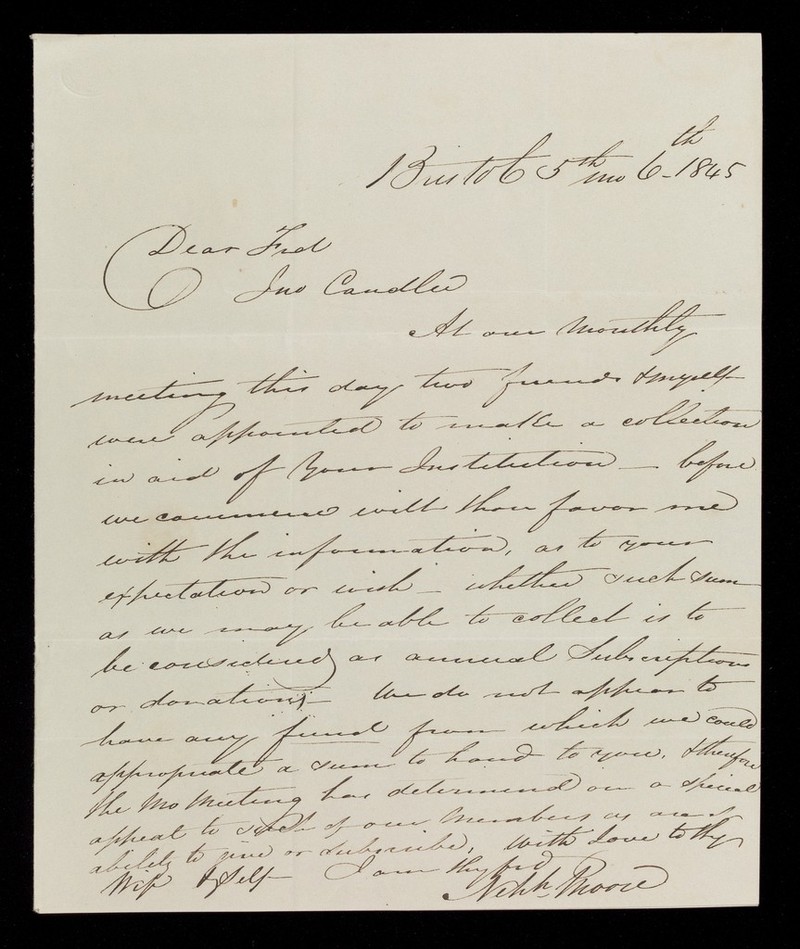 Bristol 5th mo 6th - 1845
Dear Frd
Jno Candler
At our Monthly
meeting this day two friends & myself
were appointed to make a collection
in aid of Your Institution — before
we commence wilt thou favor me
with the information, as to your
expectation or wish — whether such sum
as we may be able to collect is to
be considered as annual Subscriptions
or donations — We do not appear to
have any fund from which we could
appropriate a sum to hand to you, & therefore
the Mo Meeting has determined on a special
appeal to such of our Members as are of
ability to give or subscribe, With Love to thy
Wife & Self I am thy frd
Moore